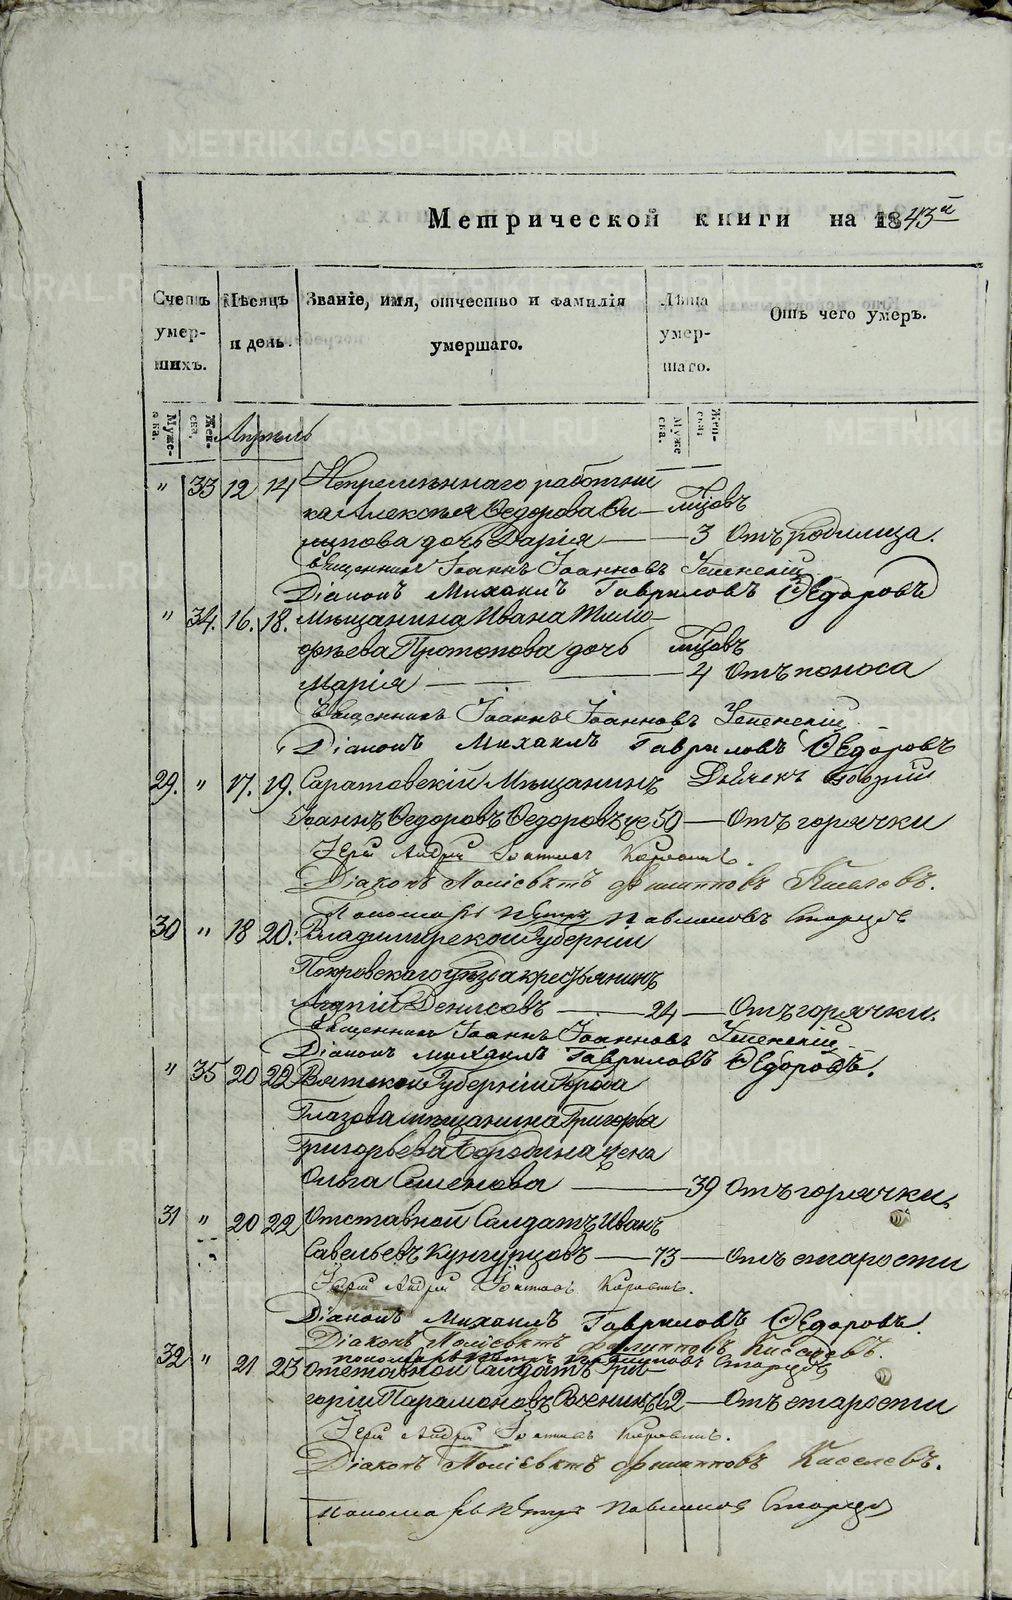 METRIKI.GASO-URAL.RU
Метрической книги на 1843й
Счетъ умершихъ.
Мѣсяцъ и день.
Званіе, имя, отчество и фамилія умершаго.
Лѣта умершаго.
Отъ чего умеръ.
Мужеска. Женска.
Апрѣль
Мужеска. Женска.
" 33 12 14 Непремѣннаго работни
ка Алексѣя Федорова
дочь Дарія — 3 Отъ родимца.
Священникъ Іоаннъ Іоанновъ Успенскій
Діаконъ Михаилъ Гавриловъ Федоровъ
" 34. 16. 18. Мѣщанина Ивана Тимо-
фѣева Протопопова дочь
Марія — 4 Отъ поноса
Священникъ Іоаннъ Іоанновъ Успенскій.
Діаконъ Михаилъ Гавриловъ Федоровъ
29. " 17. 19. Саратовскій Мѣщанинъ
Іоаннъ Федоровъ 50 — Отъ горячки
Іерей Андрей
Діаконъ Поліевктъ Филипповъ Киселевъ.
Пономарь Петръ
30 " 18 20. Владимирской Губерніи
Покровскаго уѣзда крестьянинъ
Денисовъ — 24 — Отъ горячки.
Священникъ Іоаннъ Іоанновъ Успенскій
Діаконъ Михаилъ Гавриловъ Федоровъ.
" 35 20 22 Вятской Губерніи Города
Глазова мѣщанина Григорья
Григорьева Бородина жена
Ольга Семенова — 39 Отъ горячки.
31 " 20 22 Отставной Салдатъ Иванъ
Савельевъ Кунгурцовъ — 73 — Отъ старости
Іерей Андрей
Діаконъ Михаилъ Гавриловъ Федоровъ.
Діаконъ Поліевктъ Филипповъ Киселевъ.
пономарь Петръ
32 " 21 23 Отставной Салдатъ Гри-
горій Парамоновъ 62 — Отъ старости
Іерей Андрей
Діаконъ Поліевктъ Филипповъ Киселевъ.
Пономарь Петръ